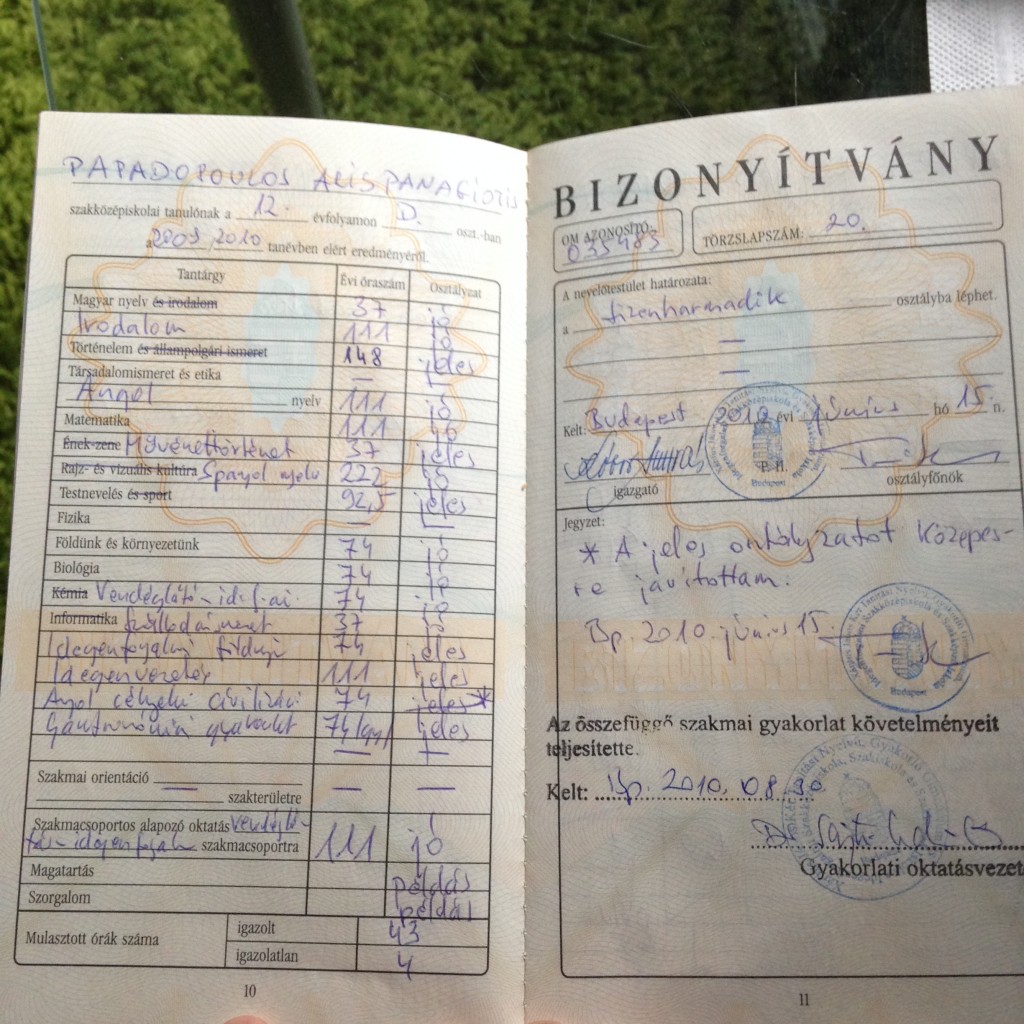 PAPADOPOULOS AKIS PANAGIOTIS
szakközépiskolai tanulónak a 12. évfolyamon D. oszt.-ban
a 2009/2010 tanévben elért eredményéről.
Tantárgy Évi óraszám Osztályzat
Magyar nyelv és irodalom 37 jó
Irodalom 111 jó
Történelem és állampolgári ismeret 148 jeles
Társadalomismeret és etika — —
Angol nyelv 111 jó
Matematika 111 jó
Ének-zene Művészettörténet 37 jeles
Rajz- és vizuális kultúra Spanyol nyelv 222 jó
Testnevelés és sport 92,5 jeles
Fizika — —
Földünk és környezetünk 74 jó
Biológia 74 jó
Kémia Vendéglátó-id.f.ai. 74 jó
Informatika Szállodai ismeret 37 jó
Idegenforgalmi földrajz 74 jeles
Idegenvezetés 111 jeles
Angol célnyelvi civilizáció 74 jeles*
Gasztronómiai gyakorlat 74/gy/ jeles
— —
Szakmai orientáció
— szakterületre — —
Szakmacsoportos alapozó oktatás Vendéglá-
tás-idegenforgalmi szakmacsoportra 111 jó
Magatartás példás
Szorgalom példás
Mulasztott órák száma igazolt 43
igazolatlan 4
10
BIZONYÍTVÁNY
OM AZONOSÍTÓ: 035483
TÖRZSLAPSZÁM: 20.
A nevelőtestület határozata:
a tizenharmadik osztályba léphet.
—
—
Kelt: Budapest 2010 évi június hó 15. n.
P. H.
igazgató osztályfőnök
Jegyzet:
* A jeles osztályzatot közepes-
re javítottam.
Bp. 2010. június 15.
Az összefüggő szakmai gyakorlat követelményeit
teljesítette.
Kelt: Bp. 2010. 08. 30.
Gyakorlati oktatásvezet
11